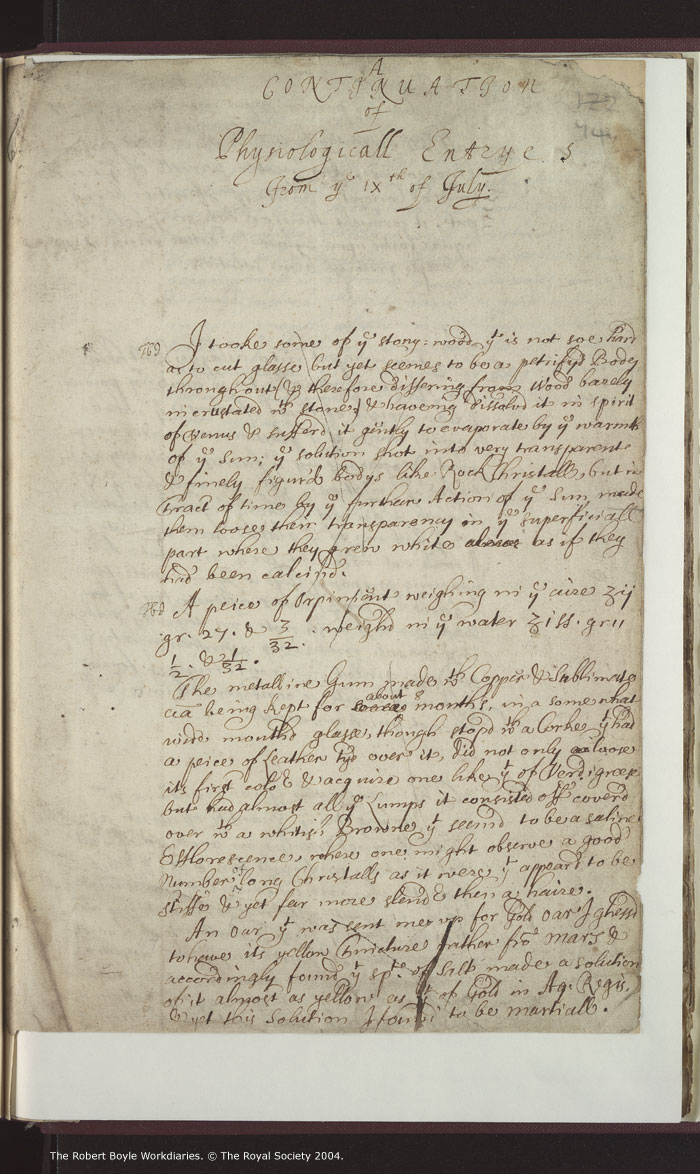 A
CONTINUATION
of
Physiologicall Entryes
From yᵉ IXᵗʰ of July.
I tooke some of yᵉ stony-wood yᵗ is not soe hard
as to cut glasse but yet seemes to be a petrifyd Body
throughout (& therefore differing from Wood barely
incrustated wᵗʰ stone) & haveing dissolvd it in spirit
of Venus & sufferd it gently to evaporate by yᵉ warmth
of yᵉ sun; yᵉ solution shot into very transparent
& finely figur'd bodys like Rock Christall, but in
tract of time by yᵉ further Action of yᵉ Sun, made
them loose their transparency in yᵉ superficiall
part where they grew white as if they
had been calcind.
A peice of Orpiment weighing in yᵉ aire ʒij
gr. 27. & 3/32. weighd in yᵉ water ʒiss. gr 11
1/2. & 1/32.
The metalline Gum made wᵗʰ Copper & Sublimate
being kept for about 8 months, in a somewhat
wide mouthd glasse, though stopd wᵗʰ a Corke yᵗ had
a peice of Leather tye over it, did not only loose
its first coloʳ & acquire one like yᵗ of Verdigreese
but had almost all yᵉ Lumps it consisted off coverd
over wᵗʰ a whitish Browne yᵗ seemd to be a saline
Efflorescence where one might observe a good
Number of long Christalls as it were yᵗ appeard to be
stiffe & yet far more slendʳ then a haire.
An Oar yᵗ was sent me up for Gold oar I ghessd
to have its yellow Tincture rather frō mars &
accordingly found yᵗ spᵗ of Salt made a solution
of it almost as yellow as yᵗ of Gold in Aq. Regis.
& yet this solution I found to be martiall.
The Robert Boyle Workdiaries. © The Royal Society 2004.